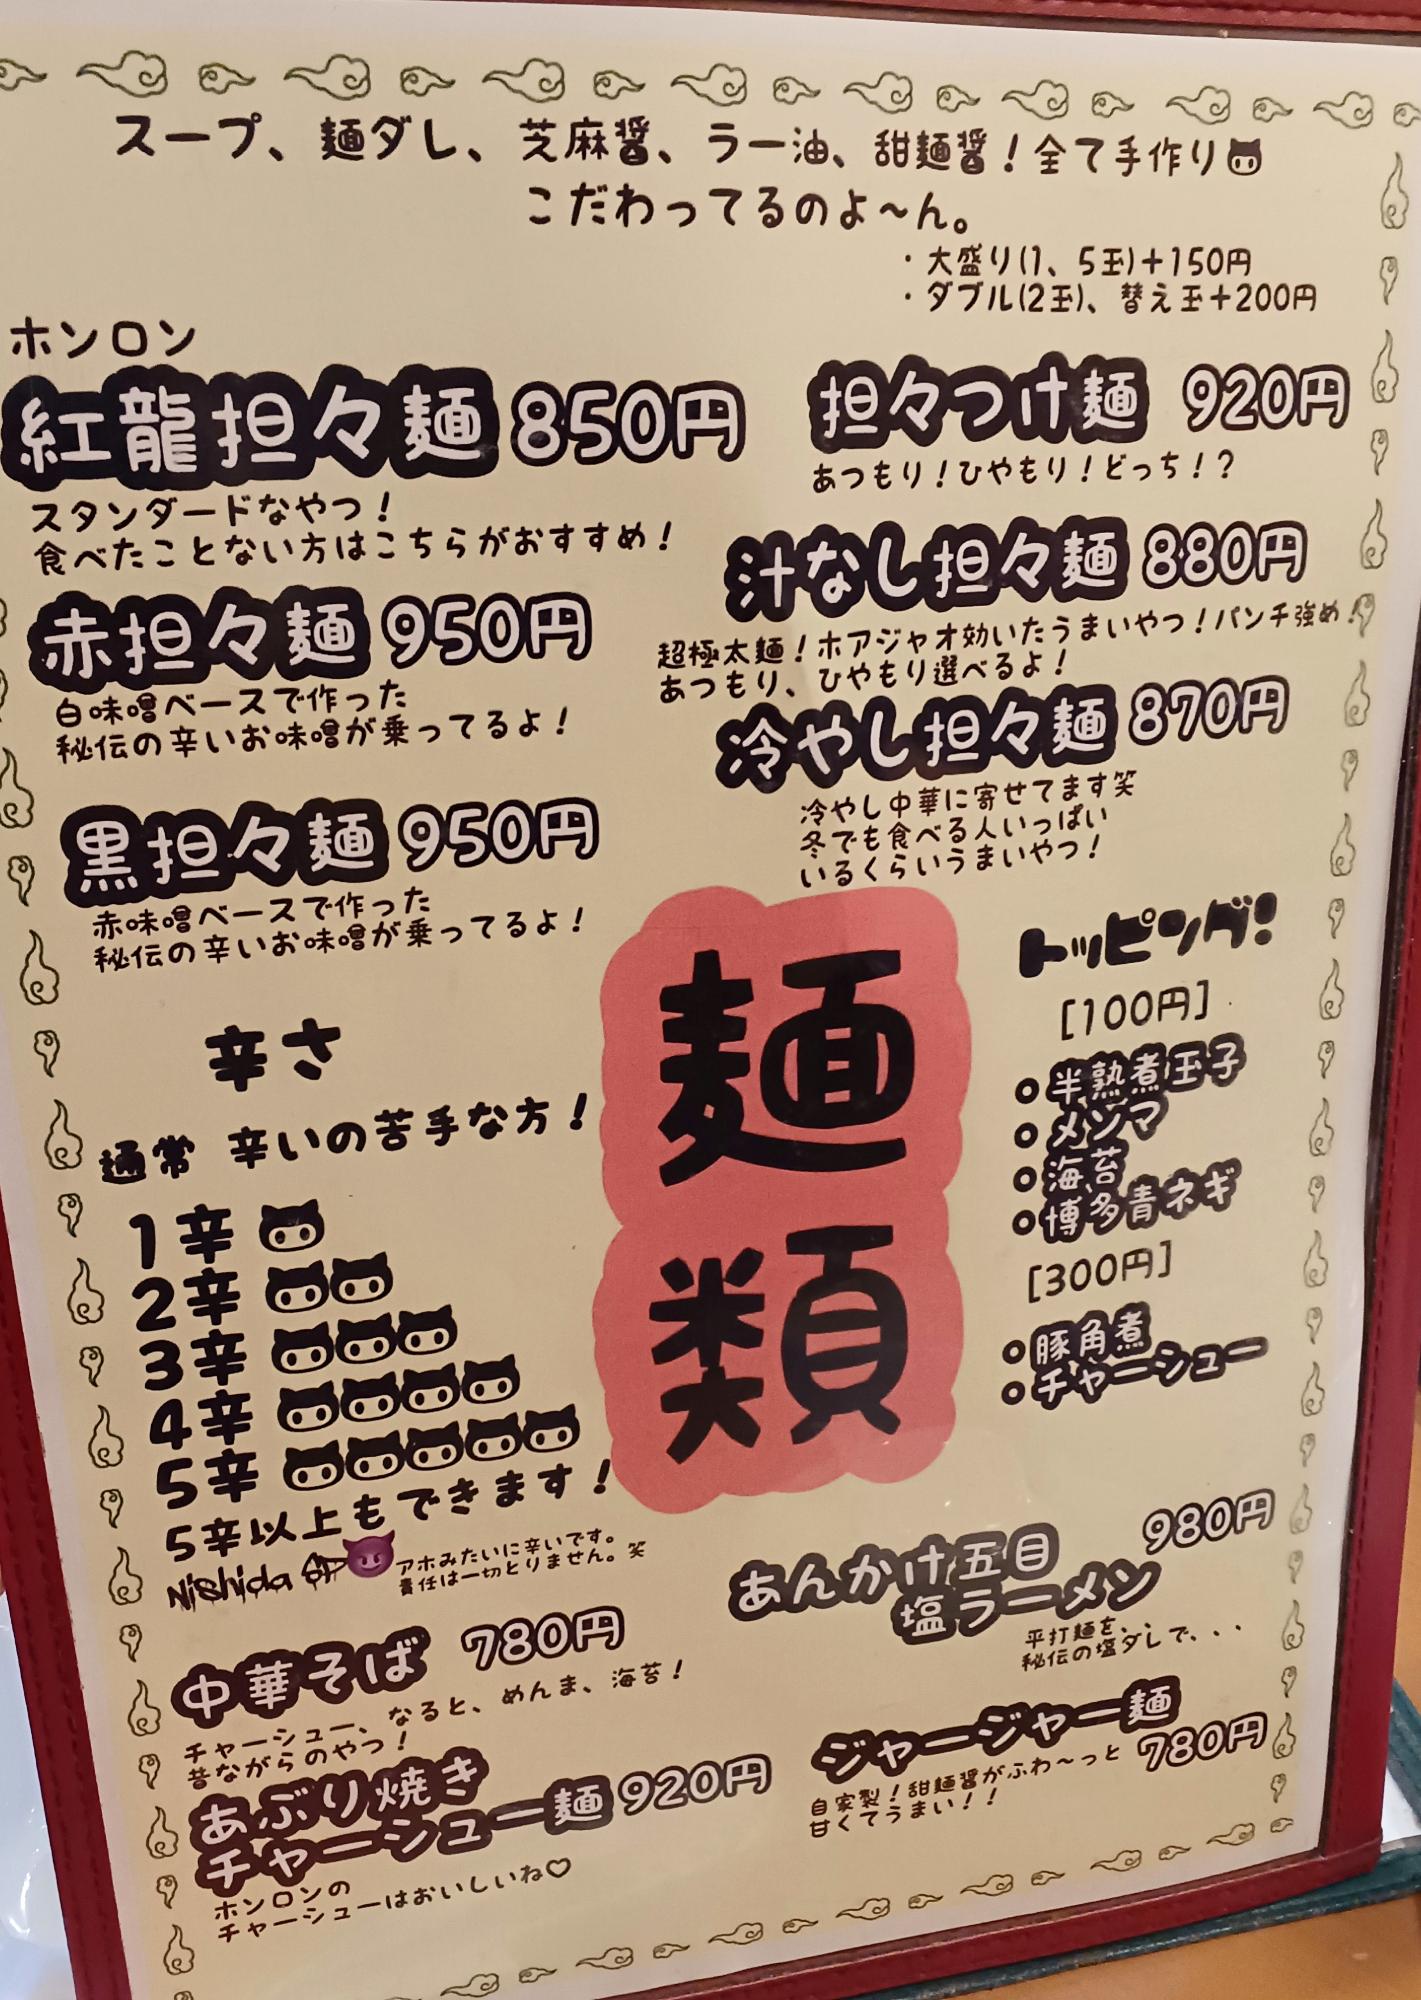 スープ、麺ダレ、芝麻醤、ラー油、甜麺醤！全て手作り
こだわってるのよ〜ん。
・大盛り(1、5玉)＋150円
・ダブル(2玉)、替え玉＋200円
ホンロン
紅龍担々麺 850円
スタンダードなやつ！
食べたことない方はこちらがおすすめ！
赤担々麺 950円
白味噌ベースで作った
秘伝の辛いお味噌が乗ってるよ！
黒担々麺 950円
赤味噌ベースで作った
秘伝の辛いお味噌が乗ってるよ！
担々つけ麺 920円
あつもり！ひやもり！どっち！？
汁なし担々麺 880円
超極太麺！ホアジャオ効いたうまいやつ！パンチ強め！
あつもり、ひやもり選べるよ！
冷やし担々麺 870円
冷やし中華に寄せてます笑
冬でも食べる人いっぱい
いるくらいうまいやつ！
麺類
辛さ
通常 辛いの苦手な方！
1辛
2辛
3辛
4辛
5辛
5辛以上もできます！
Nishida SP 😈 アホみたいに辛いです。
責任は一切とりません。笑
トッピング！
[100円]
半熟煮玉子
メンマ
海苔
博多青ネギ
[300円]
豚角煮
チャーシュー
中華そば 780円
チャーシュー、なると、めんま、海苔！
昔ながらのやつ！
あぶり焼き
チャーシュー麺 920円
ホンロンの
チャーシューはおいしいね♡
あんかけ五目 980円
塩ラーメン
平打麺を、、
秘伝の塩ダレで、、、
ジャージャー麺
780円
自家製！甜麺醤がふわ〜っと
甘くてうまい！！